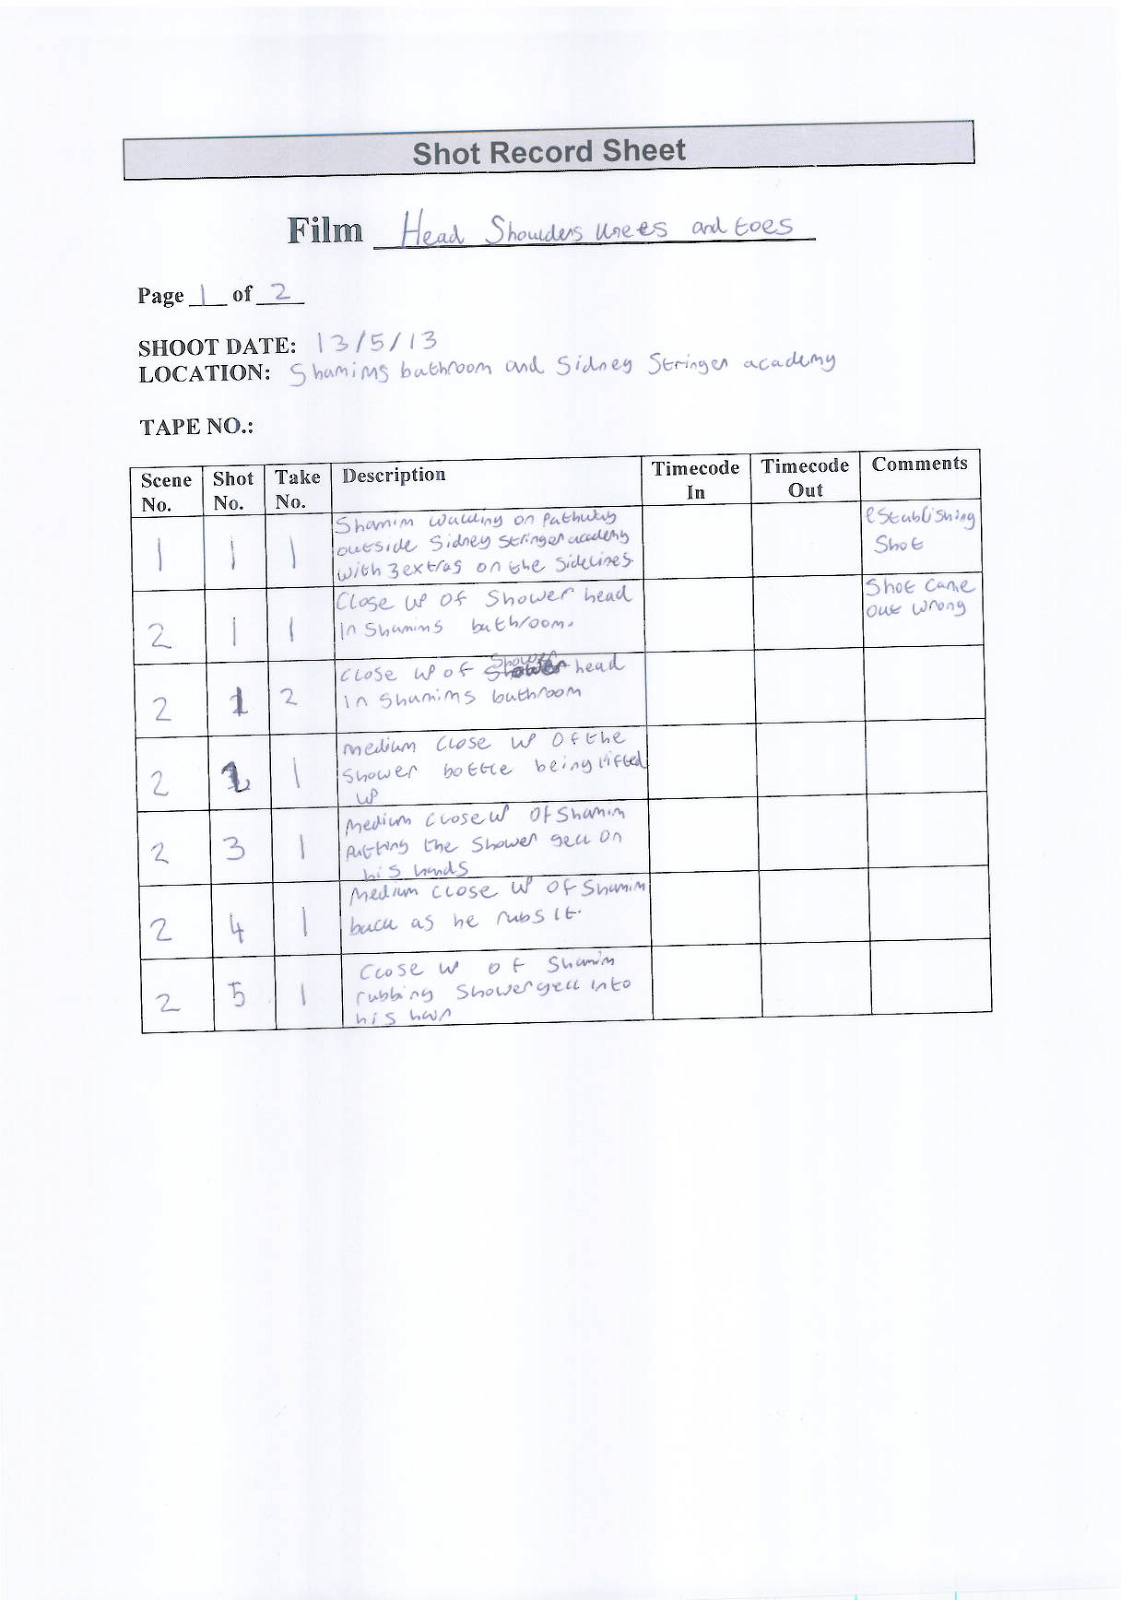 Shot Record Sheet
Film Head Shoulders knees and toes
Page 1 of 2
SHOOT DATE: 13/5/13
LOCATION: Shamims bathroom and Sidney Stringer academy
TAPE NO.:
Scene No. Shot No. Take No. Description Timecode In Timecode Out Comments
1 1 1 Shamim walking on pathway
outside Sidney Stringer academy
with 3 extras on the sidelines.
establishing
Shot
2 1 1 Close up of Shower head
in Shamims bathroom.
Shot came
out wrong
2 1 2 Close up of Shower head
in Shamims bathroom
2 2 1 medium close up of the
shower bottle being lifted
up
2 3 1 medium close up of Shamim
putting the shower gell on
his hands
2 4 1 medium close up of Shamim
back as he rubs it.
2 5 1 Close up of Shamim
rubbing shower gell into
his hair